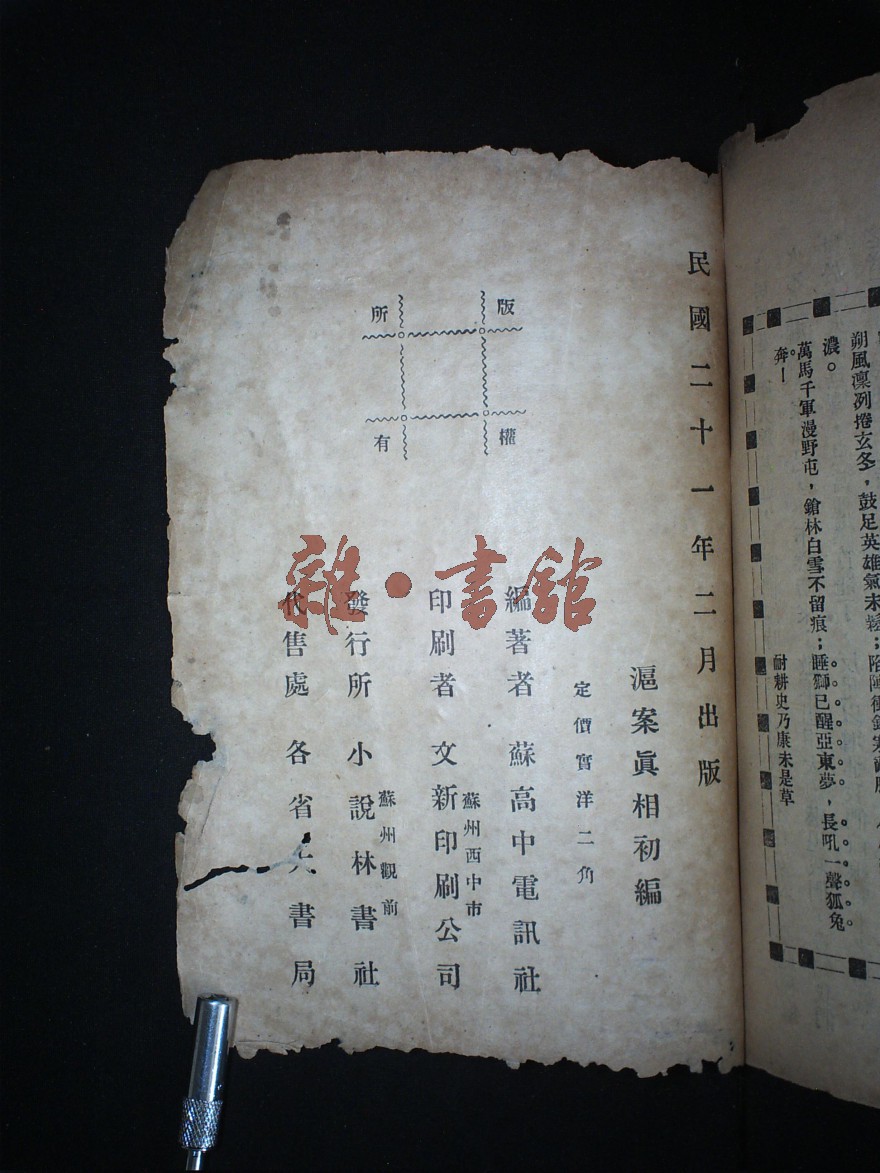 朔風凜冽捲玄冬，鼓足英雄氣未鬆；陷陣衝鋒寒
濃。
萬馬千軍漫野屯，鎗林白雪不留痕；睡獅已醒亞東夢，長吼一聲狐兔
奔—
耐耕史乃康未是草
民國二十一年二月出版
滬案眞相初編
定價實洋二角
編著者 蘇高中電訊社
蘇州西中市
印刷者 文新印刷公司
蘇州觀前
發行所 小說林書社
代售處 各省大書局
版權所有
雜·書館